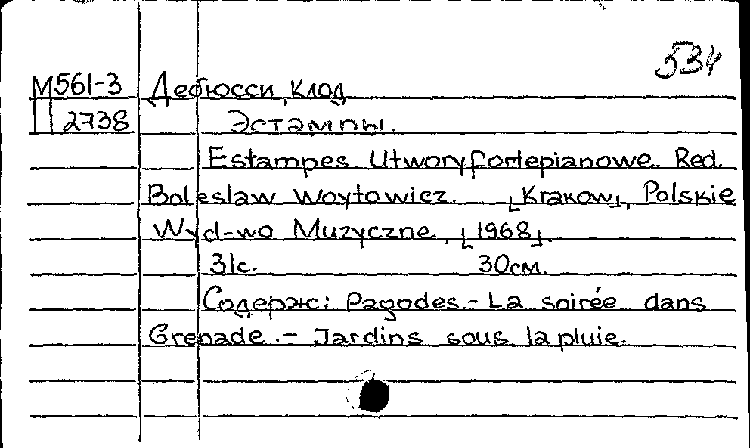 534
М561-3 Дебюсси, Клод
2738 Эстампы.
Estampes. Utwory fortepianowe. Red.
Boleslaw Woytowicz. [Krakow], Polskie
Wyd-wo Muzyczne, [1968].
31с. 30см.
Содерж: Pagodes. - La soirée dans
Grenade. - Jardins sous la pluie.